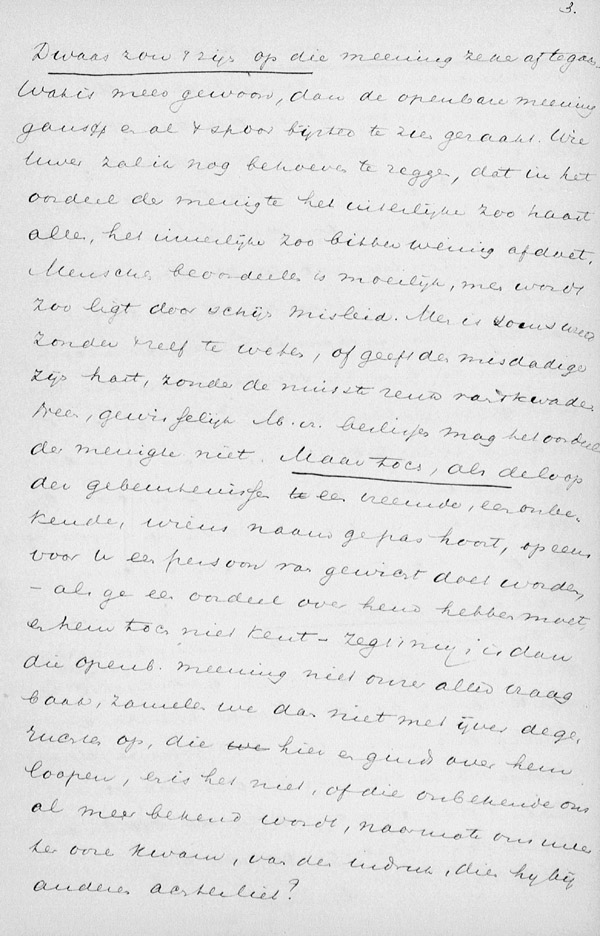 3.
Dwaas zou 't zijn op die meening zeker af te gaan.
Wat is meer gewoon, dan de openbare meening
gansch en al 't spoor bijster te zien geraakt. Wie
Uwer zal ik nog behoeven te zeggen, dat in het
oordeel der menigte het uiterlijke zoo haast
alles, het innerlijke zoo bitter weinig afdoet.
Menschen beoordeelen is moeilijk, men wordt
zoo ligt door schijn misleid. Men is soms
zonder 't zelf te weten, of geeft den misdadige
zijn hart, zonder de minste van 't kwade.
Neen, gewisselijk M. v. beslissen mag het oordeel
der menigte niet. Maar toch, als de loop
der gebeurtenissen een vreemde, een onbe-
kende, wiens naam ge pas hoort, op eens
voor U een persoon van gewicht doet worden,
– als ge een oordeel over hem hebben moet,
en hem toch niet kent – zegt mij, is dan
die openb. meening niet onzer aller vraag-
baak, zamelen we dan niet met ijver de ge-
ruchten op, die hier en ginds over hem
loopen, en is het niet, of die onbekende ons
al meer bekend wordt, naarmate ons meer
ter oore kwam, van den indruk, dien hij bij
anderen achterliet?